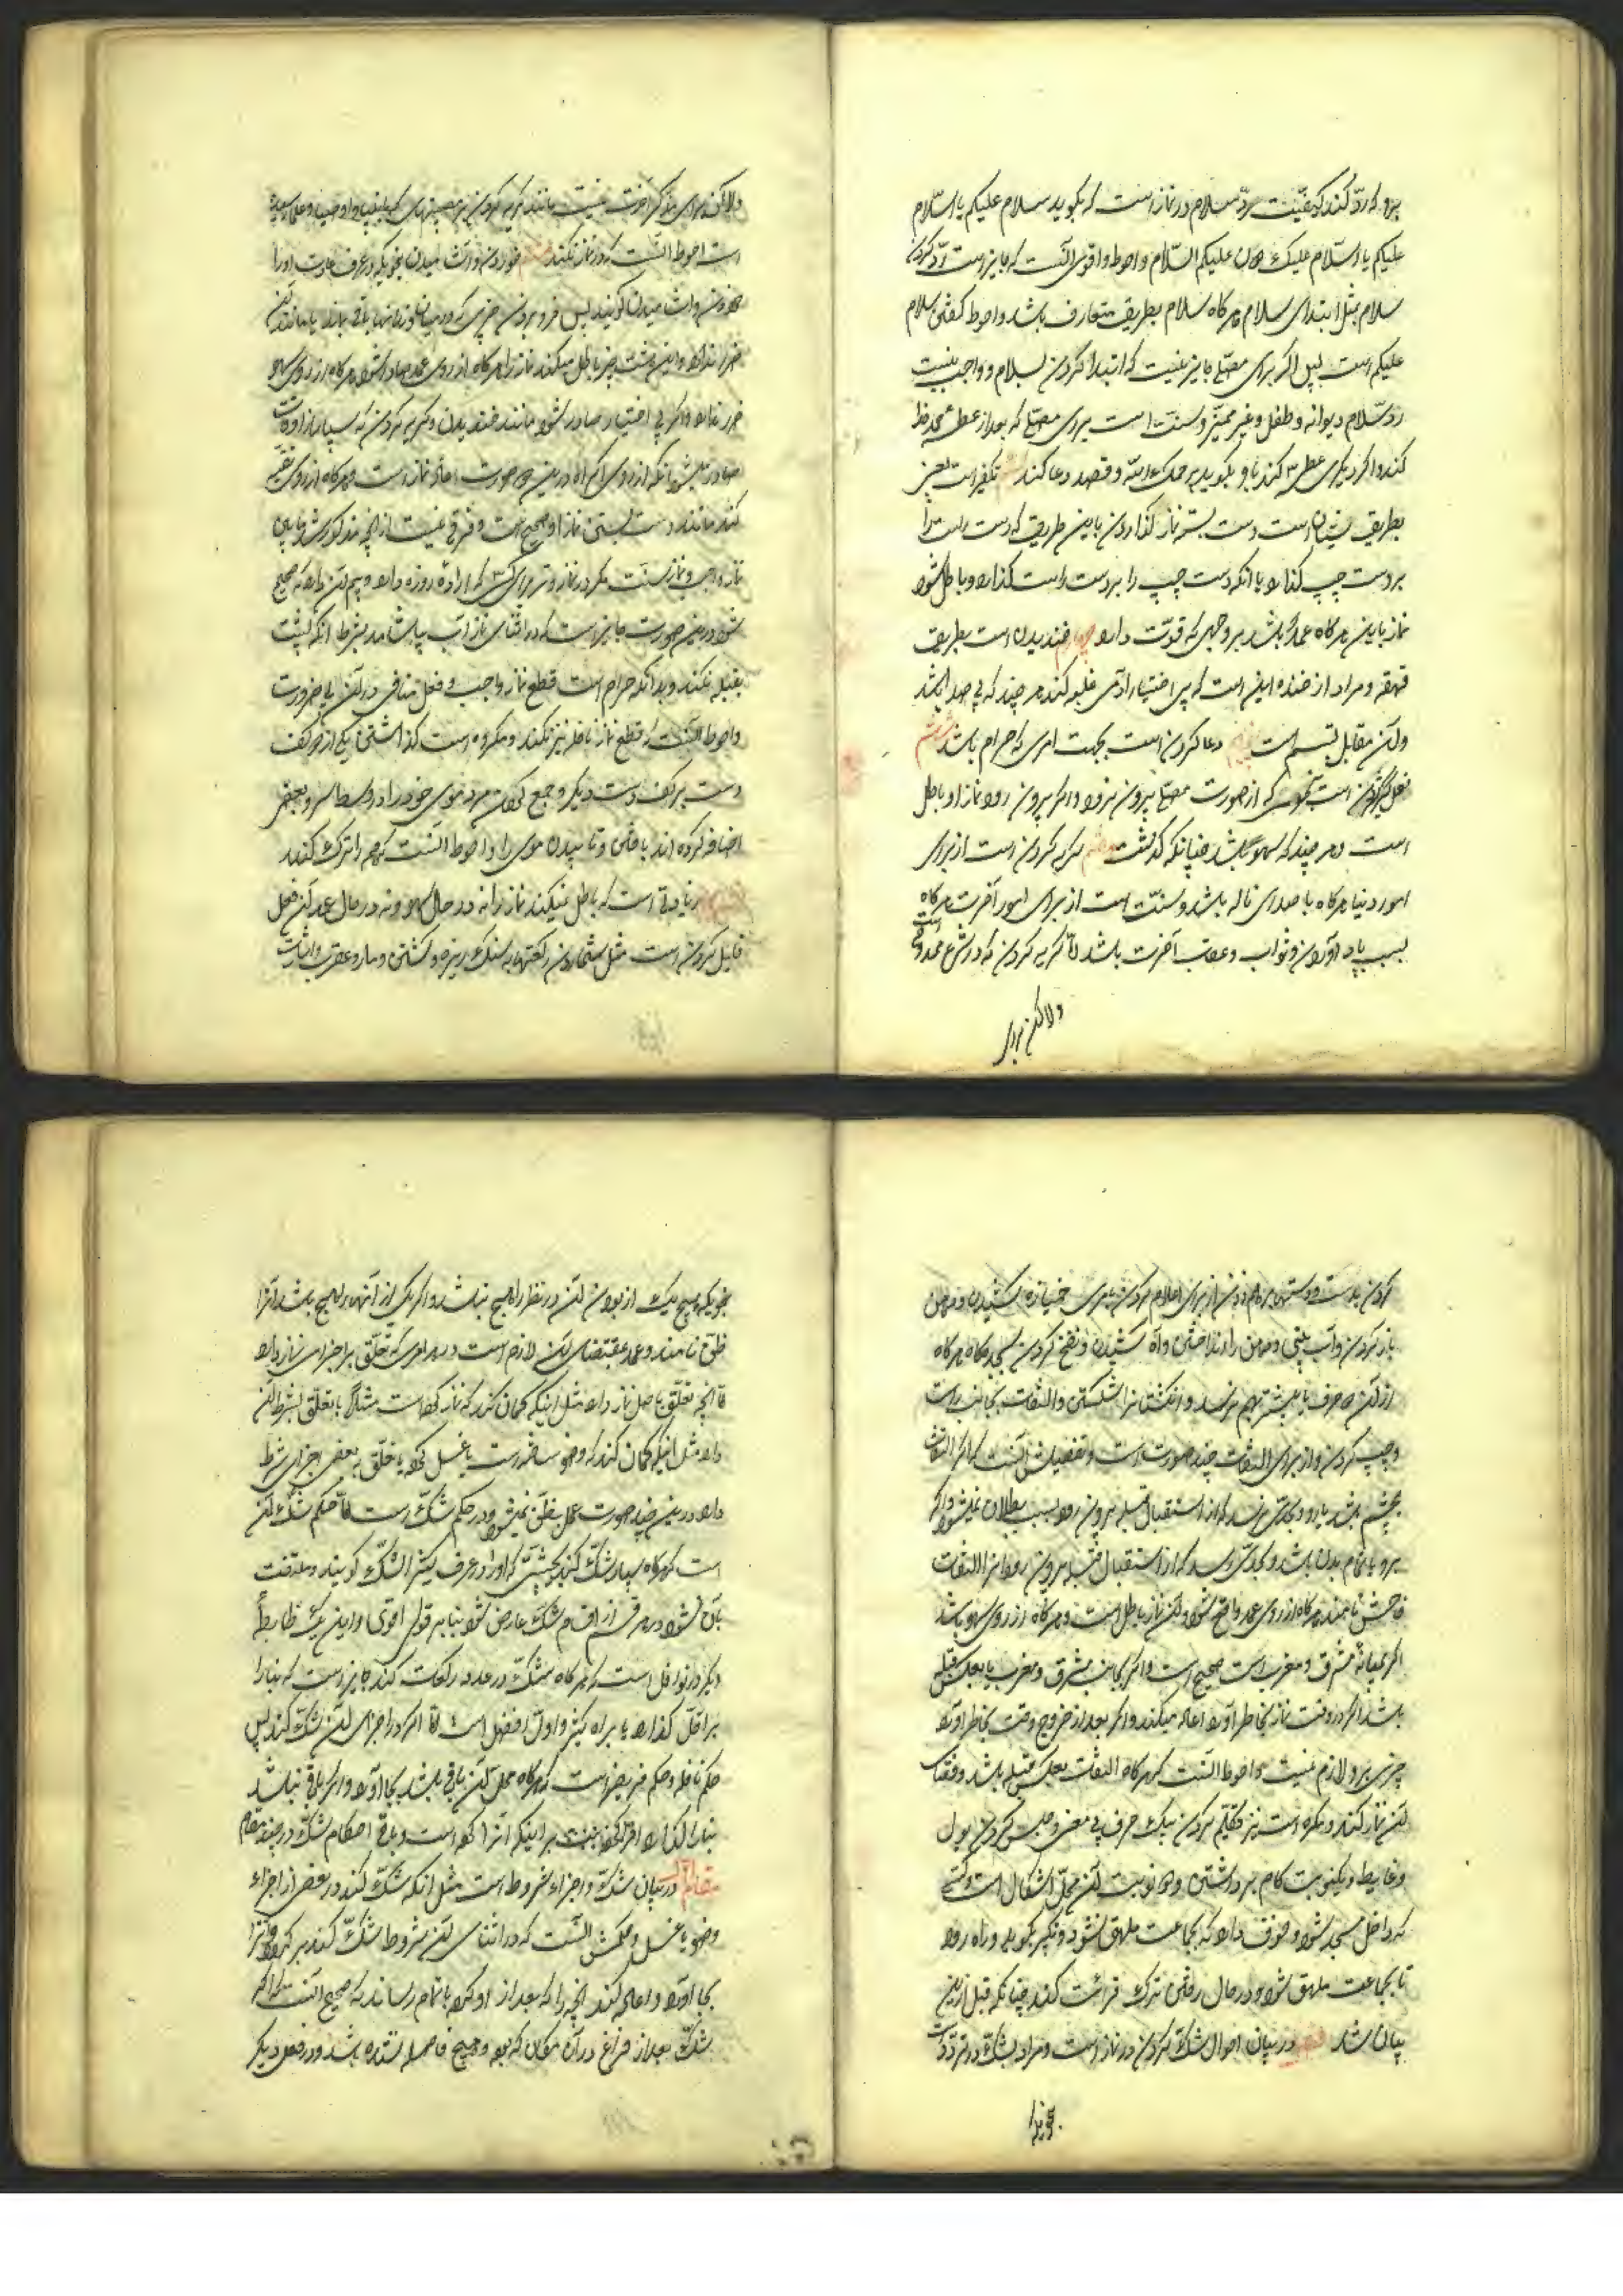 برو که ردّ کند کیفیّت ردّ سلام در نماز است که بگوید سلام علیکم یا السّلام
علیکم یا السّلام علیک علیکم السّلام و احوط و اقوی آنست که جایز است ردّ کردن
سلام بمثل ابتدای سلام هر کاه سلام بطریق متعارف باشد و احوط کفتن سلام
علیکم است پس اکر برای مصلّی جایز نیست که ابتدا کردن بسلام و واجب نیست
ردّ سلام دیوانه و طفل و غیر ممیّز و سنّت است برای مصلّی که بعد از عطسه حمد خدا
کند و اکر دیکری عطسه کند باو بکوید یرحمک الله و قصد دعا کند تکفیر است یعنی
بطریق سنّیان است دست بسته نماز کذاردن باین طریق که دست راست را
بر دست چپ کذارد یا آنکه دست چپ را بر دست راست کذارد و باطل شود
نماز باین هر کاه عمداً باشد بر وجهی که قوّت دارد چهارم خندیدن است بطریق
قهقهه و مراد از خنده این است که بی اختیار آدمی غلبه کند هر چند که بی صدا باشد
و آن مقابل تبسم است پنجم دعا کردن است بجهت امری که حرام باشد ششم
فعل کثیر کردن است که از صورت مصلّی بیرون رود و اکر بیرون رود نماز او باطل
است هر چند که سهواً باشد چنانکه کذشت هفتم کریه کردن است از برای
امور دنیا هر کاه با صدای ناله باشد و سنّت است از برای امور آخرت هر کاه
بسبب یاد آوردن ثواب و عقاب آخرت باشد امّا کریه کردن که در شرع ممدوح است
ولاکن برای
ولاکن برای آخرت نیست مانند کریه کردن بر مصیبتهای که بانبیا و اوصیا و علما رسیده
است احوط آنست که در نماز نکند هشتم خوردن و آشامیدن بنحویکه در عرف عادت او را
خوردن و آشامیدن کویند پس فرو بردن چیزی که در میان دندانها باقی بماند یا مانند آن
ضرر ندارد و این هشت چیز باطل میکند نماز را هر کاه از روی عمد صادر شود و هر کاه از روی سهو
ضرر ندارد و اکر بی اختیار صادر شود مانند خندیدن و کریه کردن که بسیار از او
صادر میشود یا آنکه از روی اکراه در این صورت اعاده نماز است و هر کاه از روی تقیّه
کند مانند دست بستن نماز او صحیح است و فرقی نیست از آنچه مذکور شد میان
نماز واجب و نماز سنّت مکر در نماز وتر برای کسی که اراده روزه دارد و بیم آن دارد که صبح
شود در این صورت جایز است که در اثنای نماز آب بیاشامد بشرط آنکه پشت
بقبله نکند و بدانکه حرام است قطع نماز واجب و فعل منافی در آن بی ضرورت
و احوط آنست که قطع نماز نافله نیز نکند و مکروه است کذاشتن یکی از دو کف
دست بر کف دست دیکر و جمع کردن مرد موی خود را در وسط سر و بعضی
اضافه کرده اند بافتن و تابیدن موی را و احوط آنست که همه را ترک کنند
زیادتی است که باطل نمیکند نماز را نه در حال سهو و نه در حال عمد آن فعل
قلیل کردن است مثل شمردن رکعتها به سنک ریزه و کشتن مار و عقرب و اشارت
کردن بدست و دستها بر هم زدن از برای اعلام کردن بامری خمیازه کشیدن و دهن
باز کردن و آب بینی و دهن را انداختن و آه کشیدن و نفخ کردن سجده کاه هر کاه
از آن دو حرف یا بیشتر بهم نرسد و انکشتانرا شکستن و التفات بجانب راست
و چپ کردن و از برای التفات چند صورت است و تفصیلش آنست که اکر التفات
بچشم باشد یا رو و بحدّی نرسد که از استقبال قبله بیرون رود سبب بطلان نمیشود و اکر
برو یا تمام بدن باشد و بحدّی رسد که از استقبال قبله بیرون رود آنرا التفات
فاحش نامند هر کاه از روی عمد واقع شود آن نماز باطل است و هر کاه از روی سهو باشد
اکر میانه مشرق و مغرب است صحیح است و اکر بجانب مشرق و مغرب یا بعکس قبله
باشد اکر در وقت نماز بخاطر آورد اعاده میکند و اکر بعد از خروج وقت بخاطر آورد
چیزی برو لازم نیست و احوط آنست که هر کاه التفات بعکس قبله باشد قضای
آن نماز کند و مکروه است نیز تکلّم کردن بیک حرف بی معنی و حبس کردن بول
و غایط و یکنوبت کام برداشتن و دو نوبت آن محلّ اشکال است کسی
که داخل مسجد شود و خوف دارد که بجماعت ملحق نشود تکبیر بکوید و راه رود
تا بجماعت ملحق شود و در حال رفتن ترک قرائت کند چنانکه قبل از این
بیان شد فصل در بیان احوال شک کردن در نماز است و مراد بشک تردّد است
بنحویکه
بنحویکه هیچیک از بودن آن در نظر راجح نباشد و اکر یکی از آنها راجح باشد آنرا
ظنّ نامند و عمد بمقتضای آن لازم است در هر امری که تعلّق باجزای نماز دارد
امّا آنچه تعلّق باصل نماز دارد مثل اینکه کمان کند که نماز کرده است مثلاً یا تعلّق بشرط آن
دارد مثل اینکه کمان کند که وضو ساخته است یا غسل کرده یا تعلّق ببعضی اجزای شرط
دارد در این چند صورت عمل بظنّ نمیشود و در حکم شکّ است امّا حکم شک آن
است که هر کاه بسیار شکّ کند بحیثیّتی که او را در عرف کثیر الشکّ کویند ملتفت
بآن نشود در هر قسم از اقسام شک عارض شود بنا بر قول اقوی و این یک ضابطه
دیکر در نوافل است که هر کاه شک در عدد رکعات کند جایز است که بنا را
بر اقلّ کذارد یا بر اکثر و اوّل افضل است امّا اکر در اجزای آن شک کند پس
حکم نافله و حکم فریضه است که هر کاه محلّ آن باقی باشد بجا آورد و اکر باقی نباشد
بنا را کذارد بر اینکه آنرا کرده است و باقی احکام شک در چند مقام
مقام اول در بیان شک و اجزاء شروط است مثل آنکه شک کند در بعضی از اجزاء
وضو یا غسل و حکمش آنست که در اثنای آن مشروط شک کند بر کردد و آنرا
بجا آورد و اعاده کند آنچه را که بعد از او کرده باتمام رساند که صحیح آنست که اکر
شک بعد از فراغ در آن مکان که بود و هیچ فاصله نشده باشد و در فعل دیکر